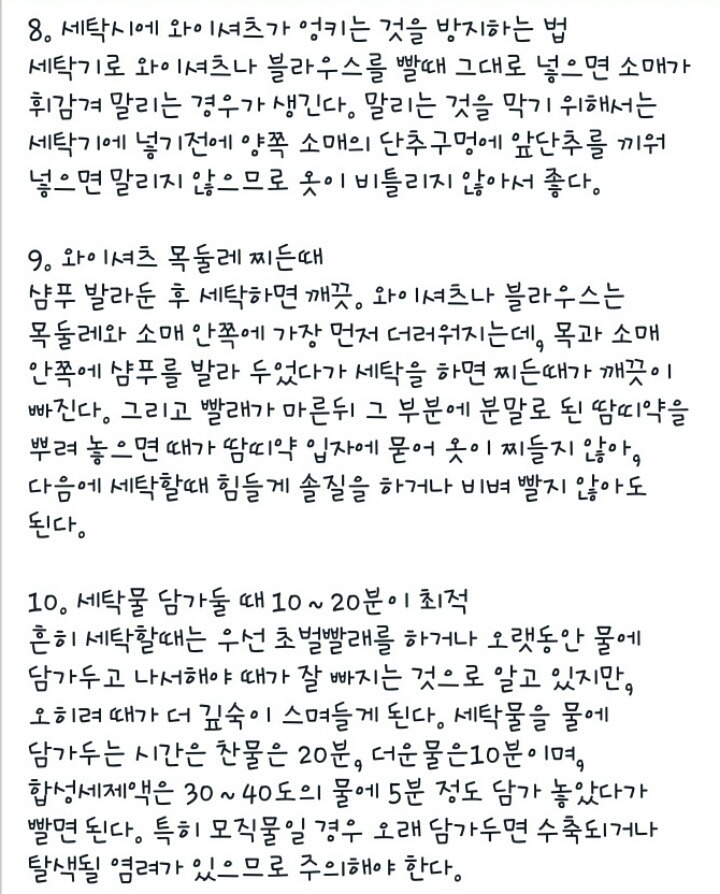 8. 세탁시에 와이셔츠가 엉키는 것을 방지하는 법
세탁기로 와이셔츠나 블라우스를 빨때 그대로 넣으면 소매가
휘감겨 말리는 경우가 생긴다. 말리는 것을 막기 위해서는
세탁기에 넣기전에 양쪽 소매의 단추구멍에 앞단추를 끼워
넣으면 말리지 않으므로 옷이 비틀리지 않아서 좋다.
9. 와이셔츠 목둘레 찌든때
샴푸 발라둔 후 세탁하면 깨끗. 와이셔츠나 블라우스는
목둘레와 소매 안쪽에 가장 먼저 더러워지는데, 목과 소매
안쪽에 샴푸를 발라 두었다가 세탁을 하면 찌든때가 깨끗이
빠진다. 그리고 빨래가 마른뒤 그 부분에 분말로 된 땀띠약을
뿌려 놓으면 때가 땀띠약 입자에 묻어 옷이 찌들지 않아,
다음에 세탁할때 힘들게 솔질을 하거나 비벼 빨지 않아도
된다.
10. 세탁물 담가둘 때 10~20분이 최적
흔히 세탁할때는 우선 초벌빨래를 하거나 오랫동안 물에
담가두고 나서해야 때가 잘 빠지는 것으로 알고 있지만,
오히려 때가 더 깊숙이 스며들게 된다. 세탁물을 물에
담가두는 시간은 찬물은 20분, 더운물은10분이며,
합성세제액은 30~40도의 물에 5분 정도 담가 놓았다가
빨면 된다. 특히 모직물일 경우 오래 담가두면 수축되거나
탈색될 염려가 있으므로 주의해야 한다.